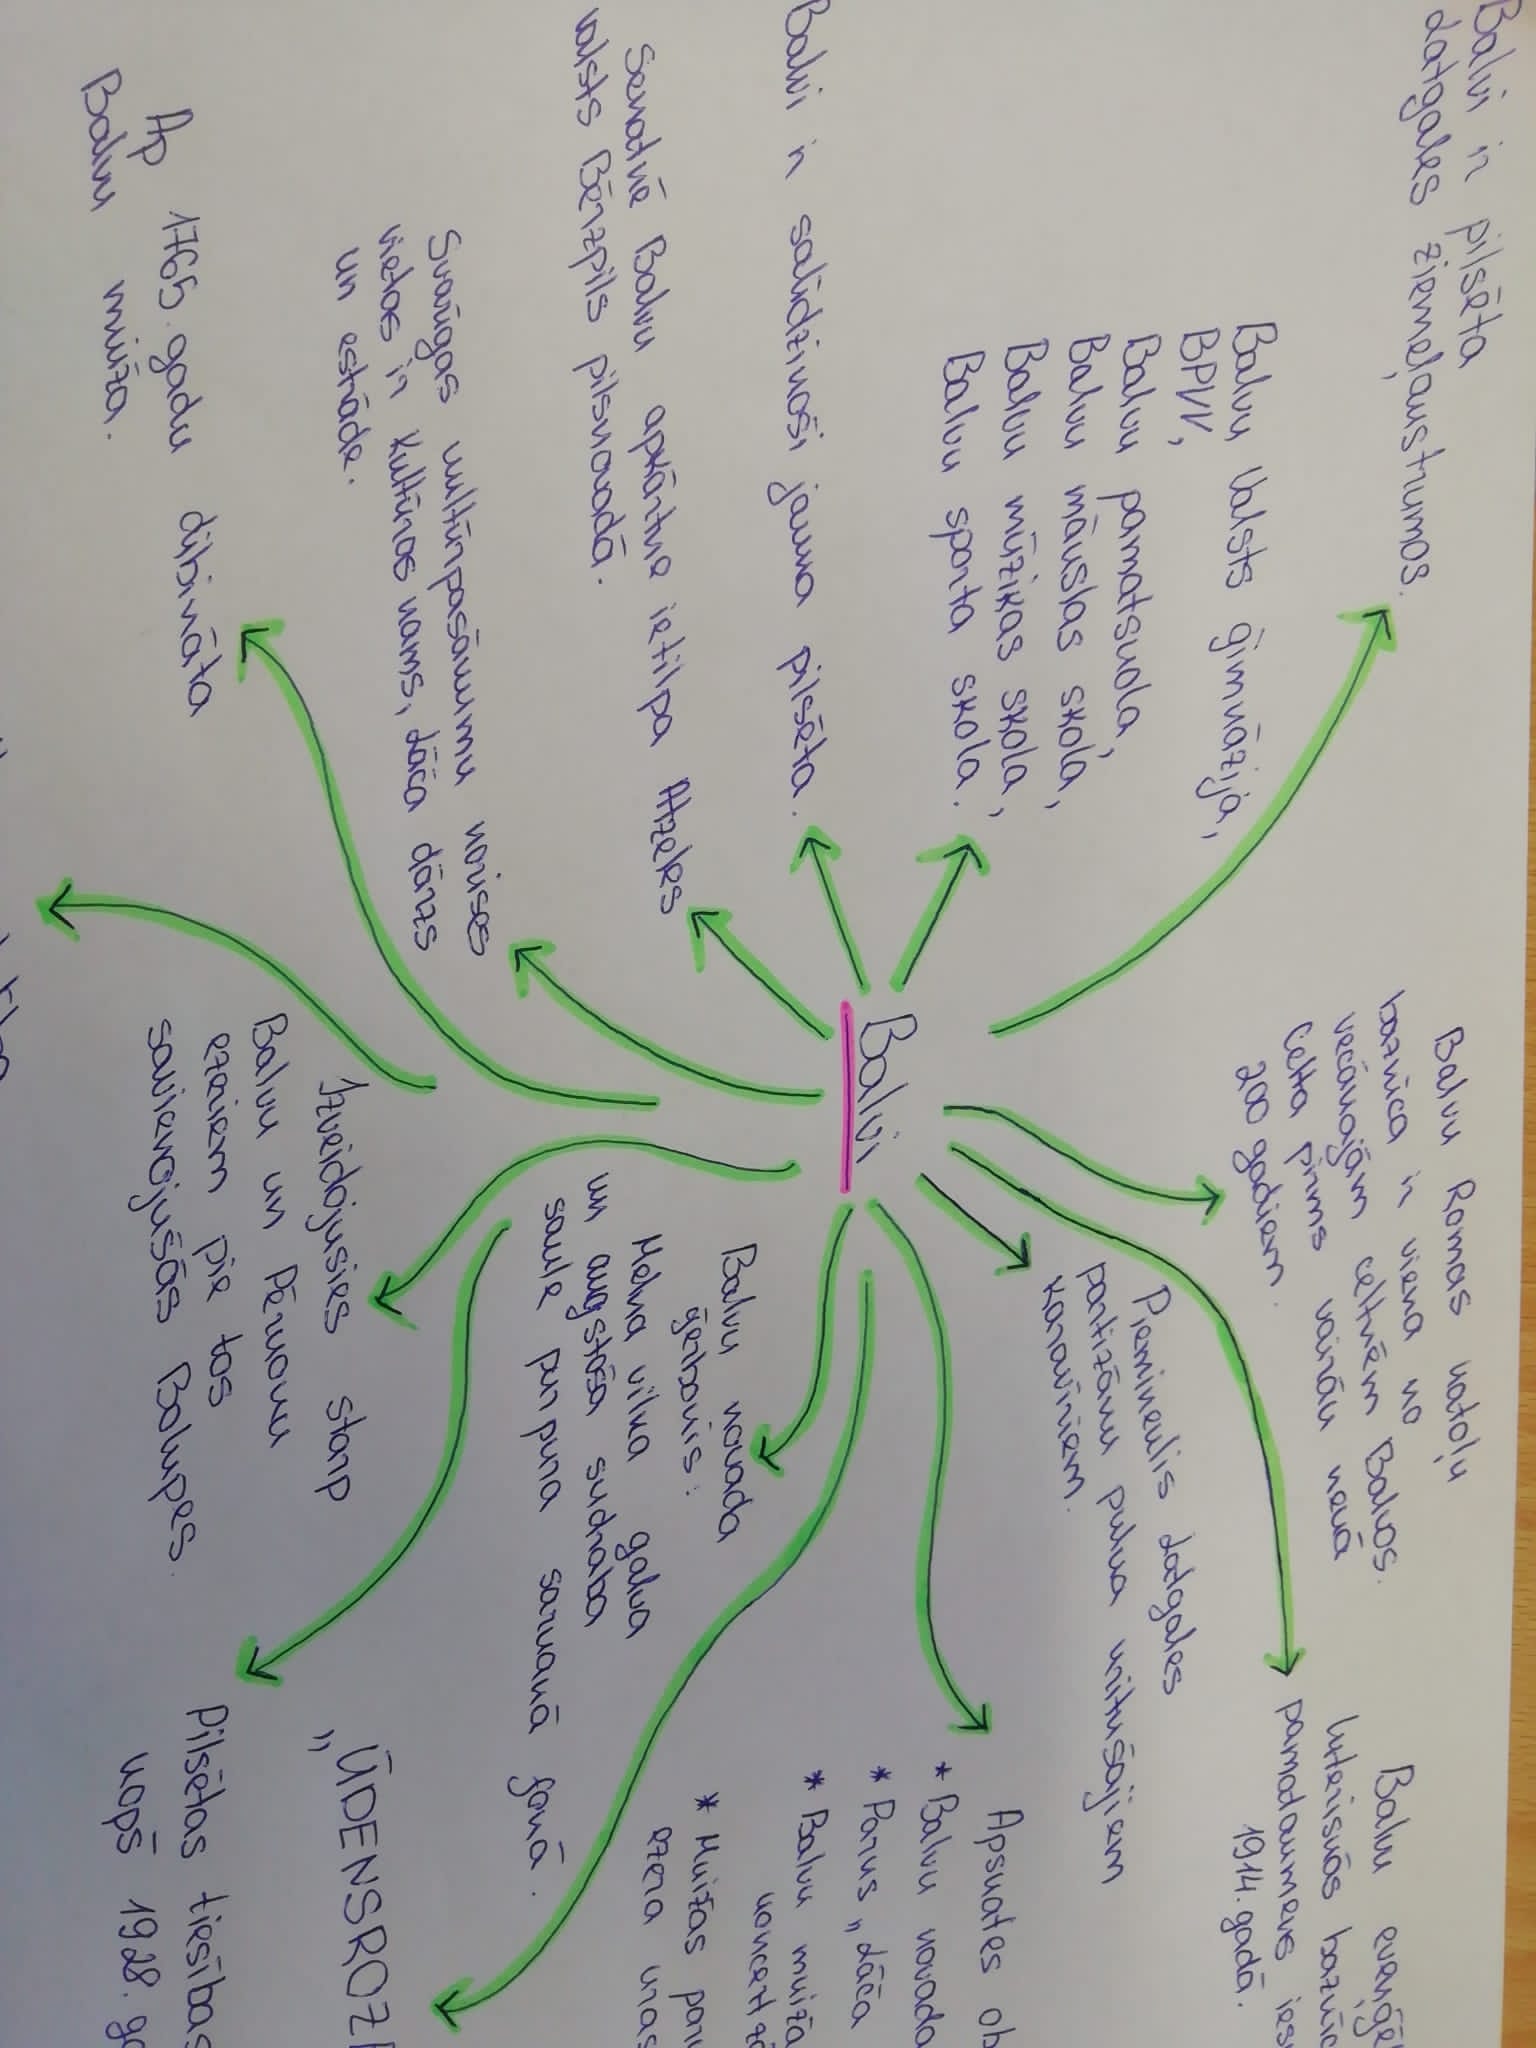 Balvi ir pilsēta
Latgales ziemeļaustrumos.
Balvu Valsts ģimnāzija,
BPVV,
Balvu pamatskola,
Balvu mākslas skola,
Balvu mūzikas skola,
Balvu sporta skola.
Balvi ir salīdzinoši jauna pilsēta.
Senatnē Balvu apkārtne ietilpa Atzeles
valsts Bērzpils pilsnovadā.
Svarīgas kultūrpasākumu norises
vietas ir Kultūras nams, Lāča dārzs
un estrāde.
Ap 1765. gadu dibināta
Balvu muiža.
Balvi
Balvu Romas katoļu
baznīca ir viena no
vecākajām celtnēm Balvos.
Celta pirms vairāk nekā
200 gadiem.
Balvu evaņģē
luteriskās baznīc
pamatakmens ies
1914. gadā.
Piemineklis Latgales
partizānu pulka kritušajiem
karavīriem.
Apskates ob
* Balvu novada
* Parks "Lāča
* Balvu muiža
koncertzā
* Muižas par
ezera kras
Balvu novada
ģerbonis:
Melna vilka galva
un augstāsa sudraba
saule purpura sarkanā fonā.
"ŪDENSROZ
Izveidojusies starp
Balvu un Pērkonu
ezeriem pie tos
savienojušās Bolupes.
Pilsētas tiesības
kopš 1928. ga